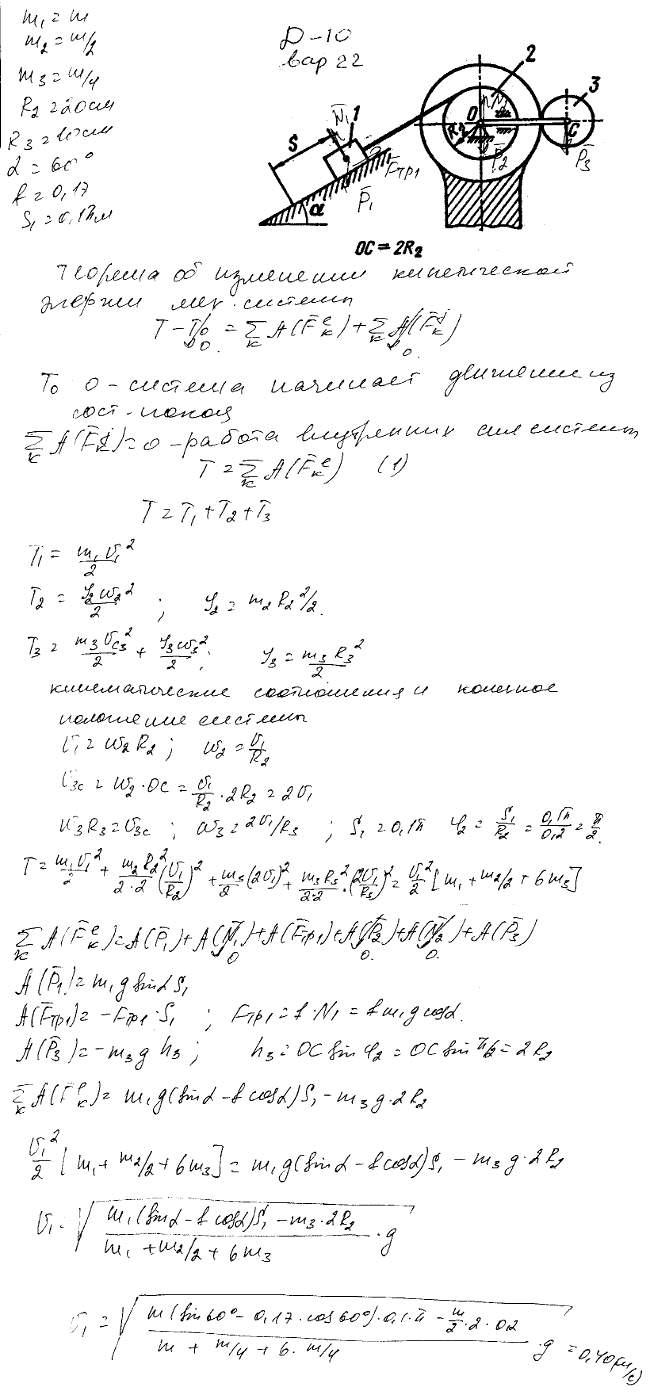 m₁ = m
m₂ = m/2
m₃ = m/4
R₂ = 20см
R₃ = 10см
α = 60°
f = 0,17
S₁ = 0,1πм
Д-10
вар 22
N̄₁ 1 S F̄тр1 P̄₁ α
2 N̄₂ O R₂ P̄₂ 3 C P̄₃
OC = 2R₂
Теорема об изменении кинетической
энергии мех. системы
T - T₀ = Σ A(F̄ₖᵉ) + Σ A(F̄ₖʲ)
T₀ 0 - система начинает движение из
сост. покоя
Σ A(F̄ₖʲ) = 0 - работа внутренних сил системы
T = Σ A(F̄ₖᵉ) (1)
T = T₁ + T₂ + T₃
T₁ = m₁υ₁²/2
T₂ = J₂ω₂²/2 ; J₂ = m₂R₂²/2.
T₃ = m₃υc₃²/2 + J₃ω₃²/2 ; J₃ = m₃R₃²/2
кинематические соотношения и конечное
положение системы
υ₁ = ω₂R₂ ; ω₂ = υ₁/R₂
υ₃c = ω₂·OC = υ₁/R₂ · 2R₂ = 2υ₁
ω₃R₃ = υ₃c ; ω₃ = 2υ₁/R₃ ; S₁ = 0,1π φ₂ = S₁/R₂ = 0,1π/0,2 = π/2.
T = m₁υ₁²/2 + m₂R₂²/2·2 (υ₁/R₂)² + m₃/2 (2υ₁)² + m₃R₃²/2·2 · (2υ₁/R₃)² = υ₁²/2 [m₁ + m₂/2 + 6m₃]
Σ A(F̄ₖᵉ) = A(P̄₁) + A(N̄₁) + A(F̄тр1) + A(P̄₂) + A(N̄₂) + A(P̄₃)
A(P̄₁) = m₁g sinα S₁
A(F̄тр1) = -Fтр1·S₁ ; Fтр1 = f·N₁ = f m₁g cosα.
A(P̄₃) = -m₃g h₃ ; h₃ = OC sinφ₂ = OC sin π/2 = 2R₂
Σ A(F̄ₖᵉ) = m₁g(sinα - f cosα)S₁ - m₃g·2R₂
υ₁²/2 [m₁ + m₂/2 + 6m₃] = m₁g(sinα - f cosα)S₁ - m₃g·2R₂
υ₁ = √((m₁(sinα - f cosα)S₁ - m₃·2R₂)/(m₁ + m₂/2 + 6m₃) · g)
υ₁ = √((m(sin60° - 0,17·cos60°)·0,1·π - m/2·2·0,2)/(m + m/4 + 6·m/4) · g) = 0,40(м/с)